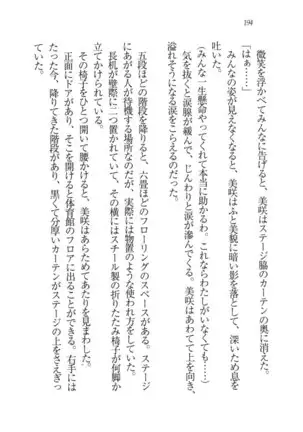 194
微笑を浮かべてみんなに告げると、美咲はステージ脇のカーテンの奥に消えた。
「はぁ……」
みんなの姿が見えなくなると、美咲はふと美貌に暗い影を落として、深いため息を
吐いた。
(みんな一生懸命やってくれて本当に助かるわ。これならわたしがいなくても……)
気を抜くと涙腺が緩んで、じんわりと涙が滲んでくる。美咲はあわてて上を向き、
溢れそうになる涙をこらえるのだった。
五段ほどの階段を降りると、六畳ほどのフローリングのスペースがある。ステージ
にあがる人が待機する場所なのだが、実際には物置のような使われ方をしていた。
長机が壁際に二つ置かれていて、その横にはスチール製の折りたたみ椅子が何脚か
立てかけられている。
その椅子をひとつ開いて腰かけると、美咲はあらためてあたりを見まわした。
正面にドアがあり、そこを開けると体育館のフロアに出ることができる。右手には
たった今、降りてきた階段があり、黒くて分厚いカーテンがステージの上をさえぎっ
ていた。